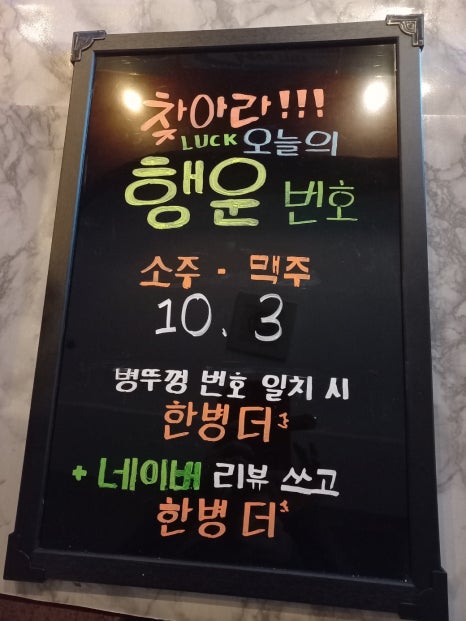 찾아라!!!
LUCK 오늘의
행운 번호
소주 · 맥주
10. 3
병뚜껑 번호 일치 시
한병 더
+ 네이버 리뷰 쓰고
한병 더